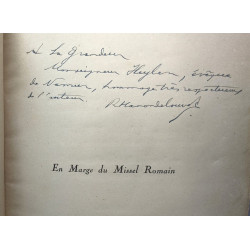 A Sa Grandeur
Monseigneur Heylen, évêque
de Namur, hommage très respectueux
de l'auteur
En Marge du Missel Romain